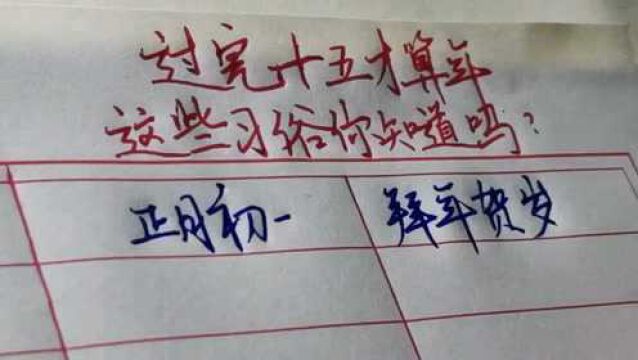 过完十五才算年
这些习俗你知道吗?
正月初一 拜年贺岁